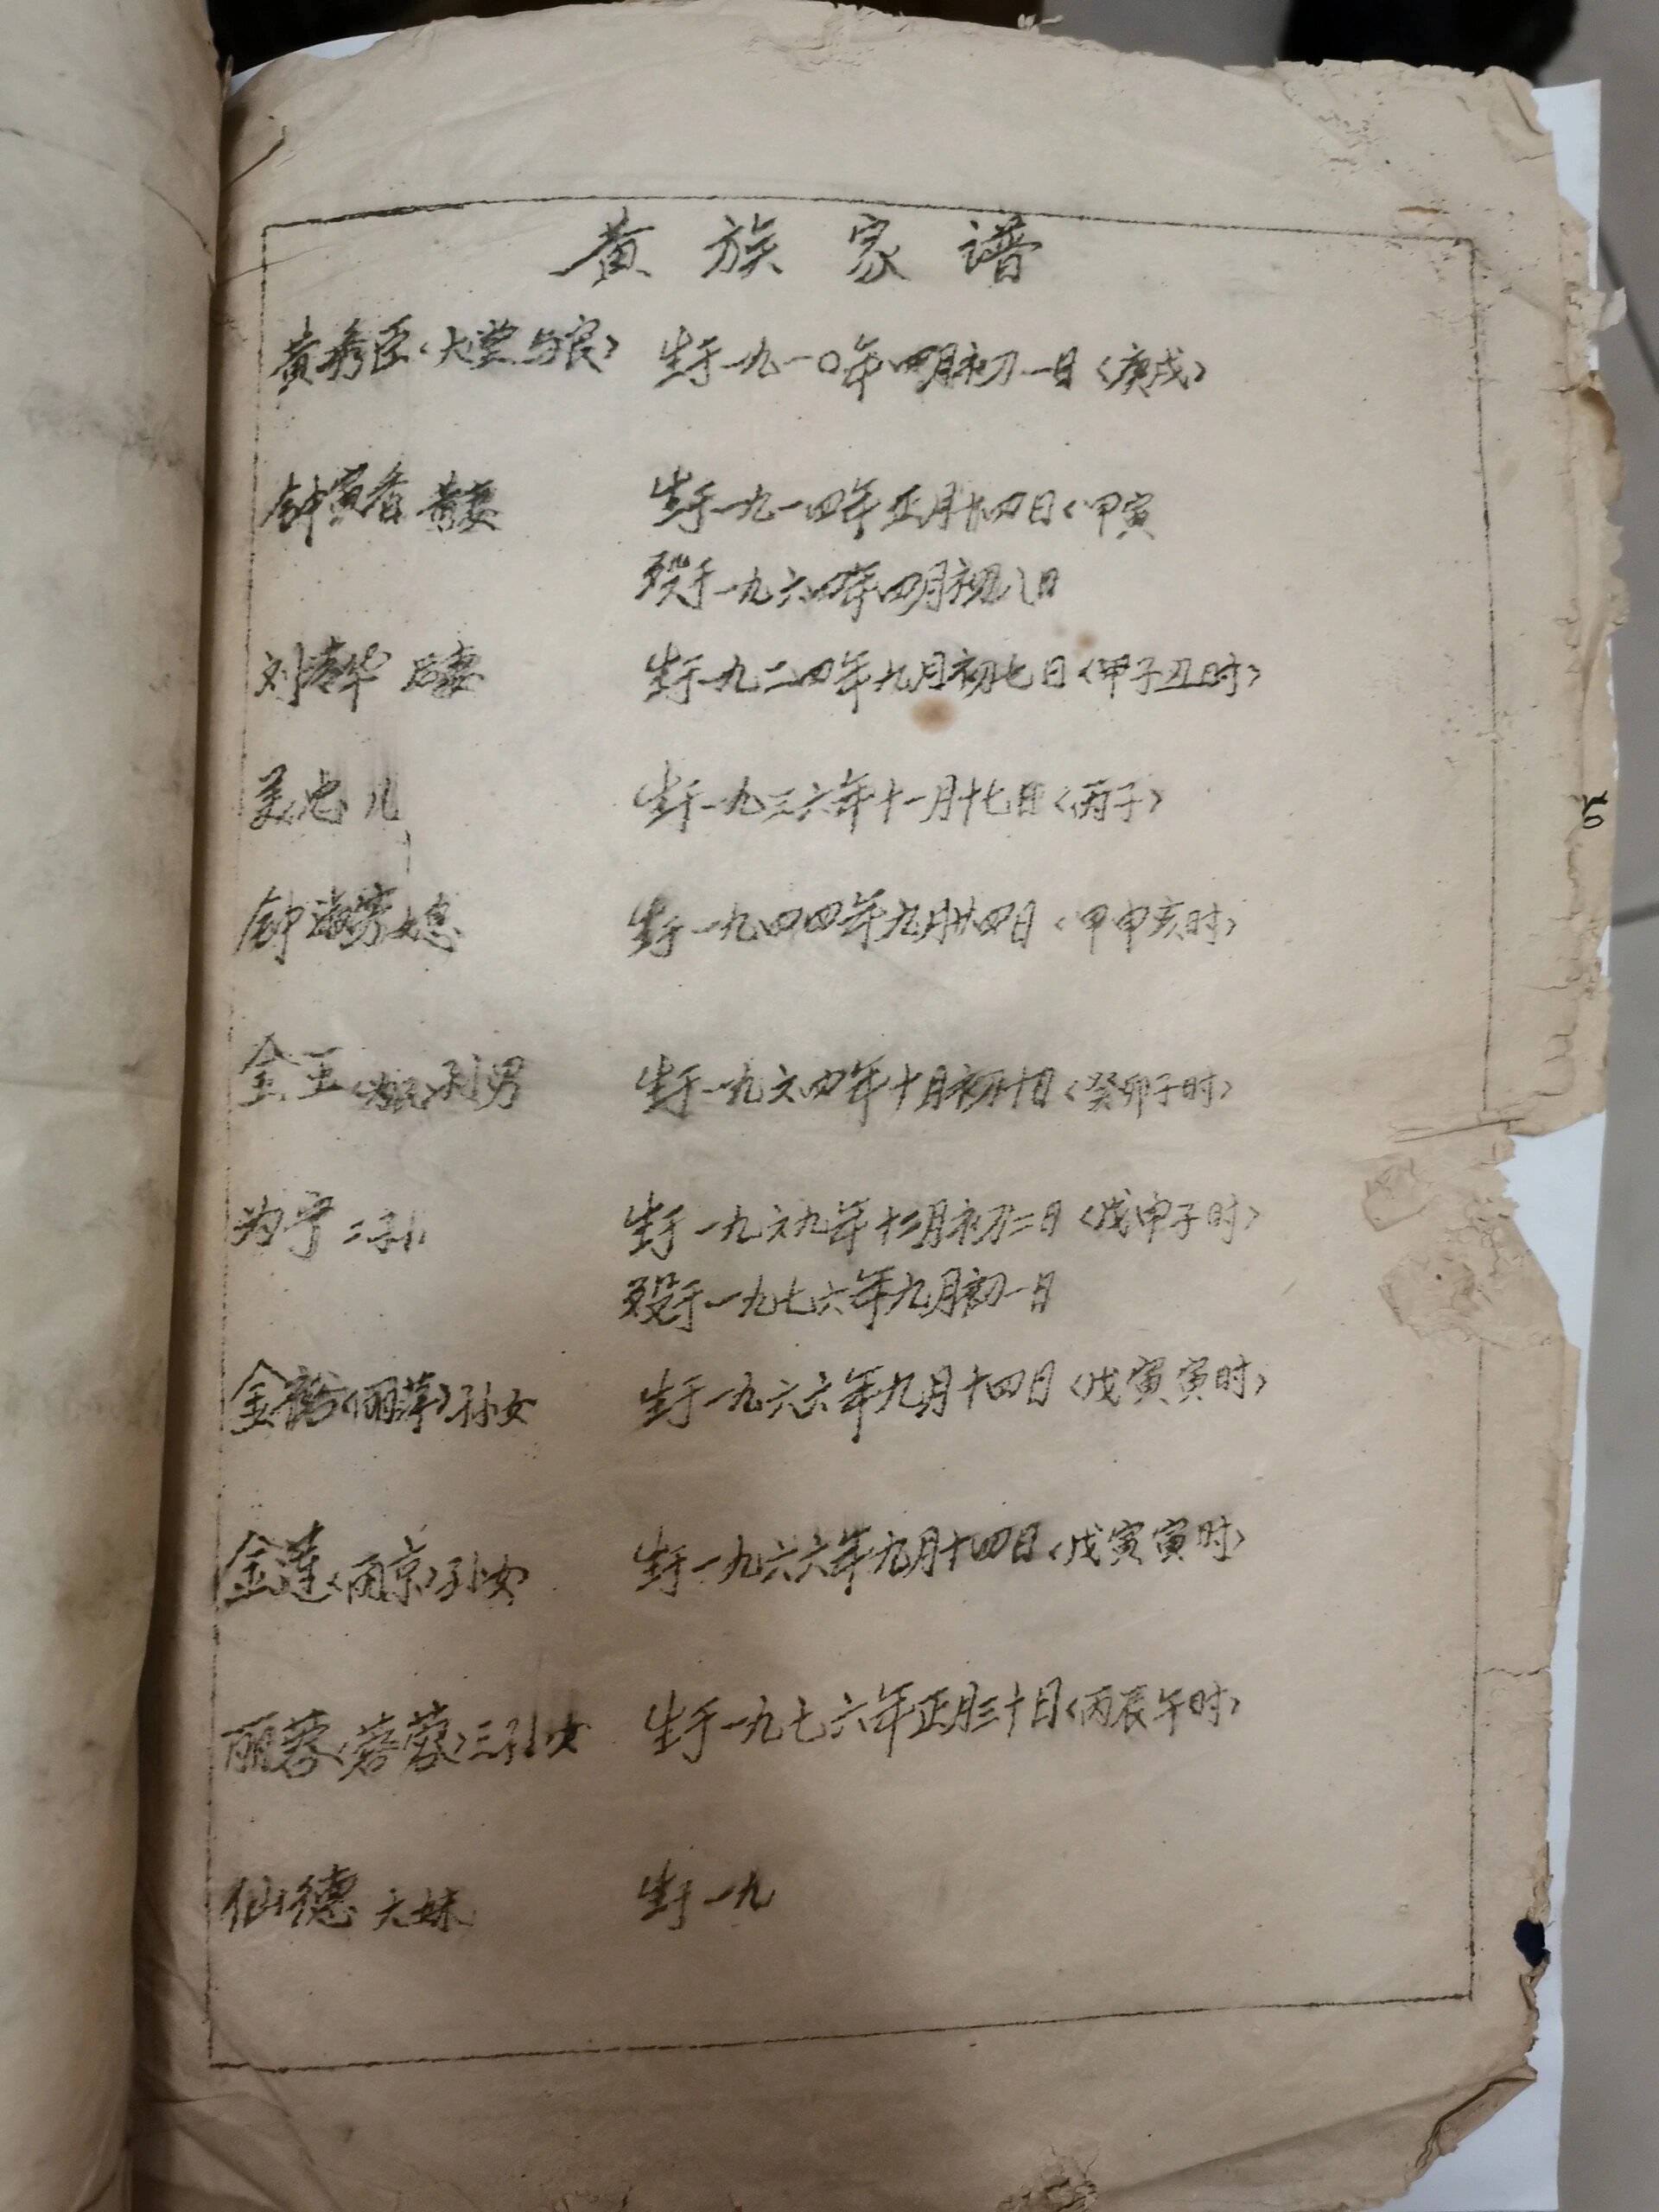 黄族家谱
黄秀臣〈大堂 与民〉 生于一九一〇年四月初一日〈庚戌〉
钟寅香 前妻 生于一九一四年正月廿四日〈甲寅
殁于一九六四年四月初八日
刘清华 后妻 生于一九二四年九月初七日〈甲子丑时〉
美忠 儿 生于一九三六年十一月十七日〈丙子〉
钟海芳 媳 生于一九四四年九月廿四日〈甲申亥时〉
金玉 孙男 生于一九六四年十月初十日〈癸卯子时〉
为宁 二孙 生于一九六九年十二月初二日〈戊申子时〉
殁于一九七六年九月初一日
金 〈丽萍〉孙女 生于一九六六年九月十四日〈戊寅寅时〉
金莲〈丽京〉孙女 生于一九六六年九月十四日〈戊寅寅时〉
丽蓉〈蓉蓉〉三孙女 生于一九七六年正月三十日〈丙辰午时〉
仙德 大妹 生于一九